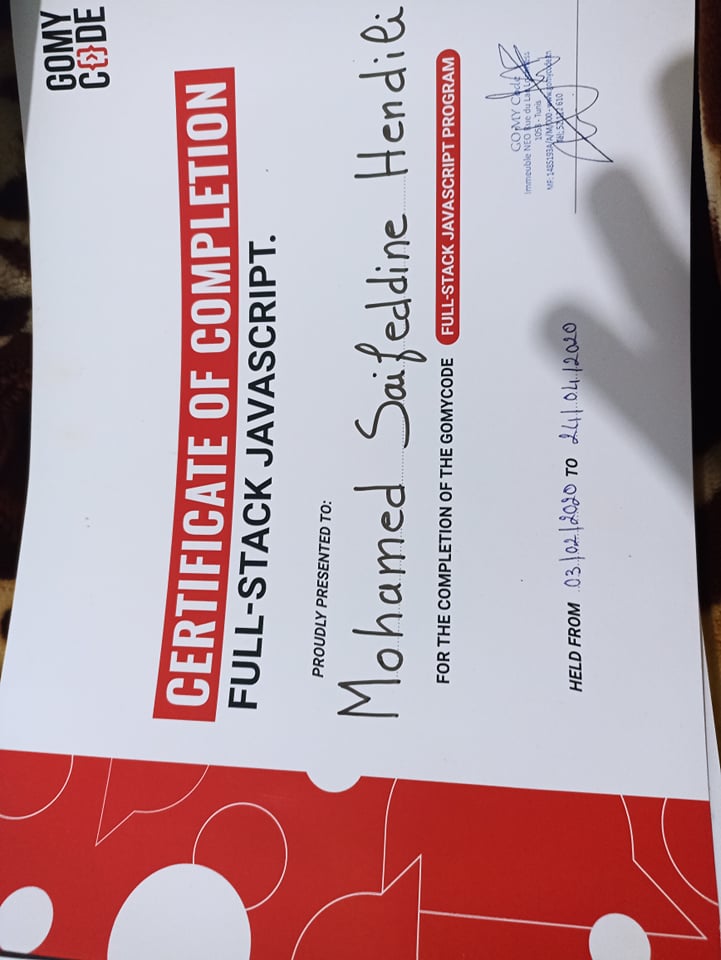 GOMY
C{}DE
CERTIFICATE OF COMPLETION
FULL-STACK JAVASCRIPT.
PROUDLY PRESENTED TO:
Mohamed Saifeddine Hendili
FOR THE COMPLETION OF THE GOMYCODE FULL-STACK JAVASCRIPT PROGRAM
HELD FROM 03/02/2020 TO 24/04/2020
GOMY Code
Immeuble NEO Rue du Lac
1053 - Tunis